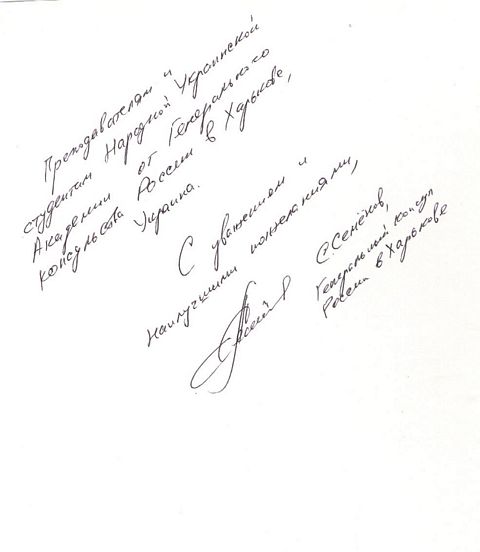 Преподавателям и
студентам Народной Украинской
Академии от Генерального
консульства России в Харькове,
Украина.
С уважением и
наилучшими пожеланиями,
С. Семёнов,
Генеральный консул
России в Харькове